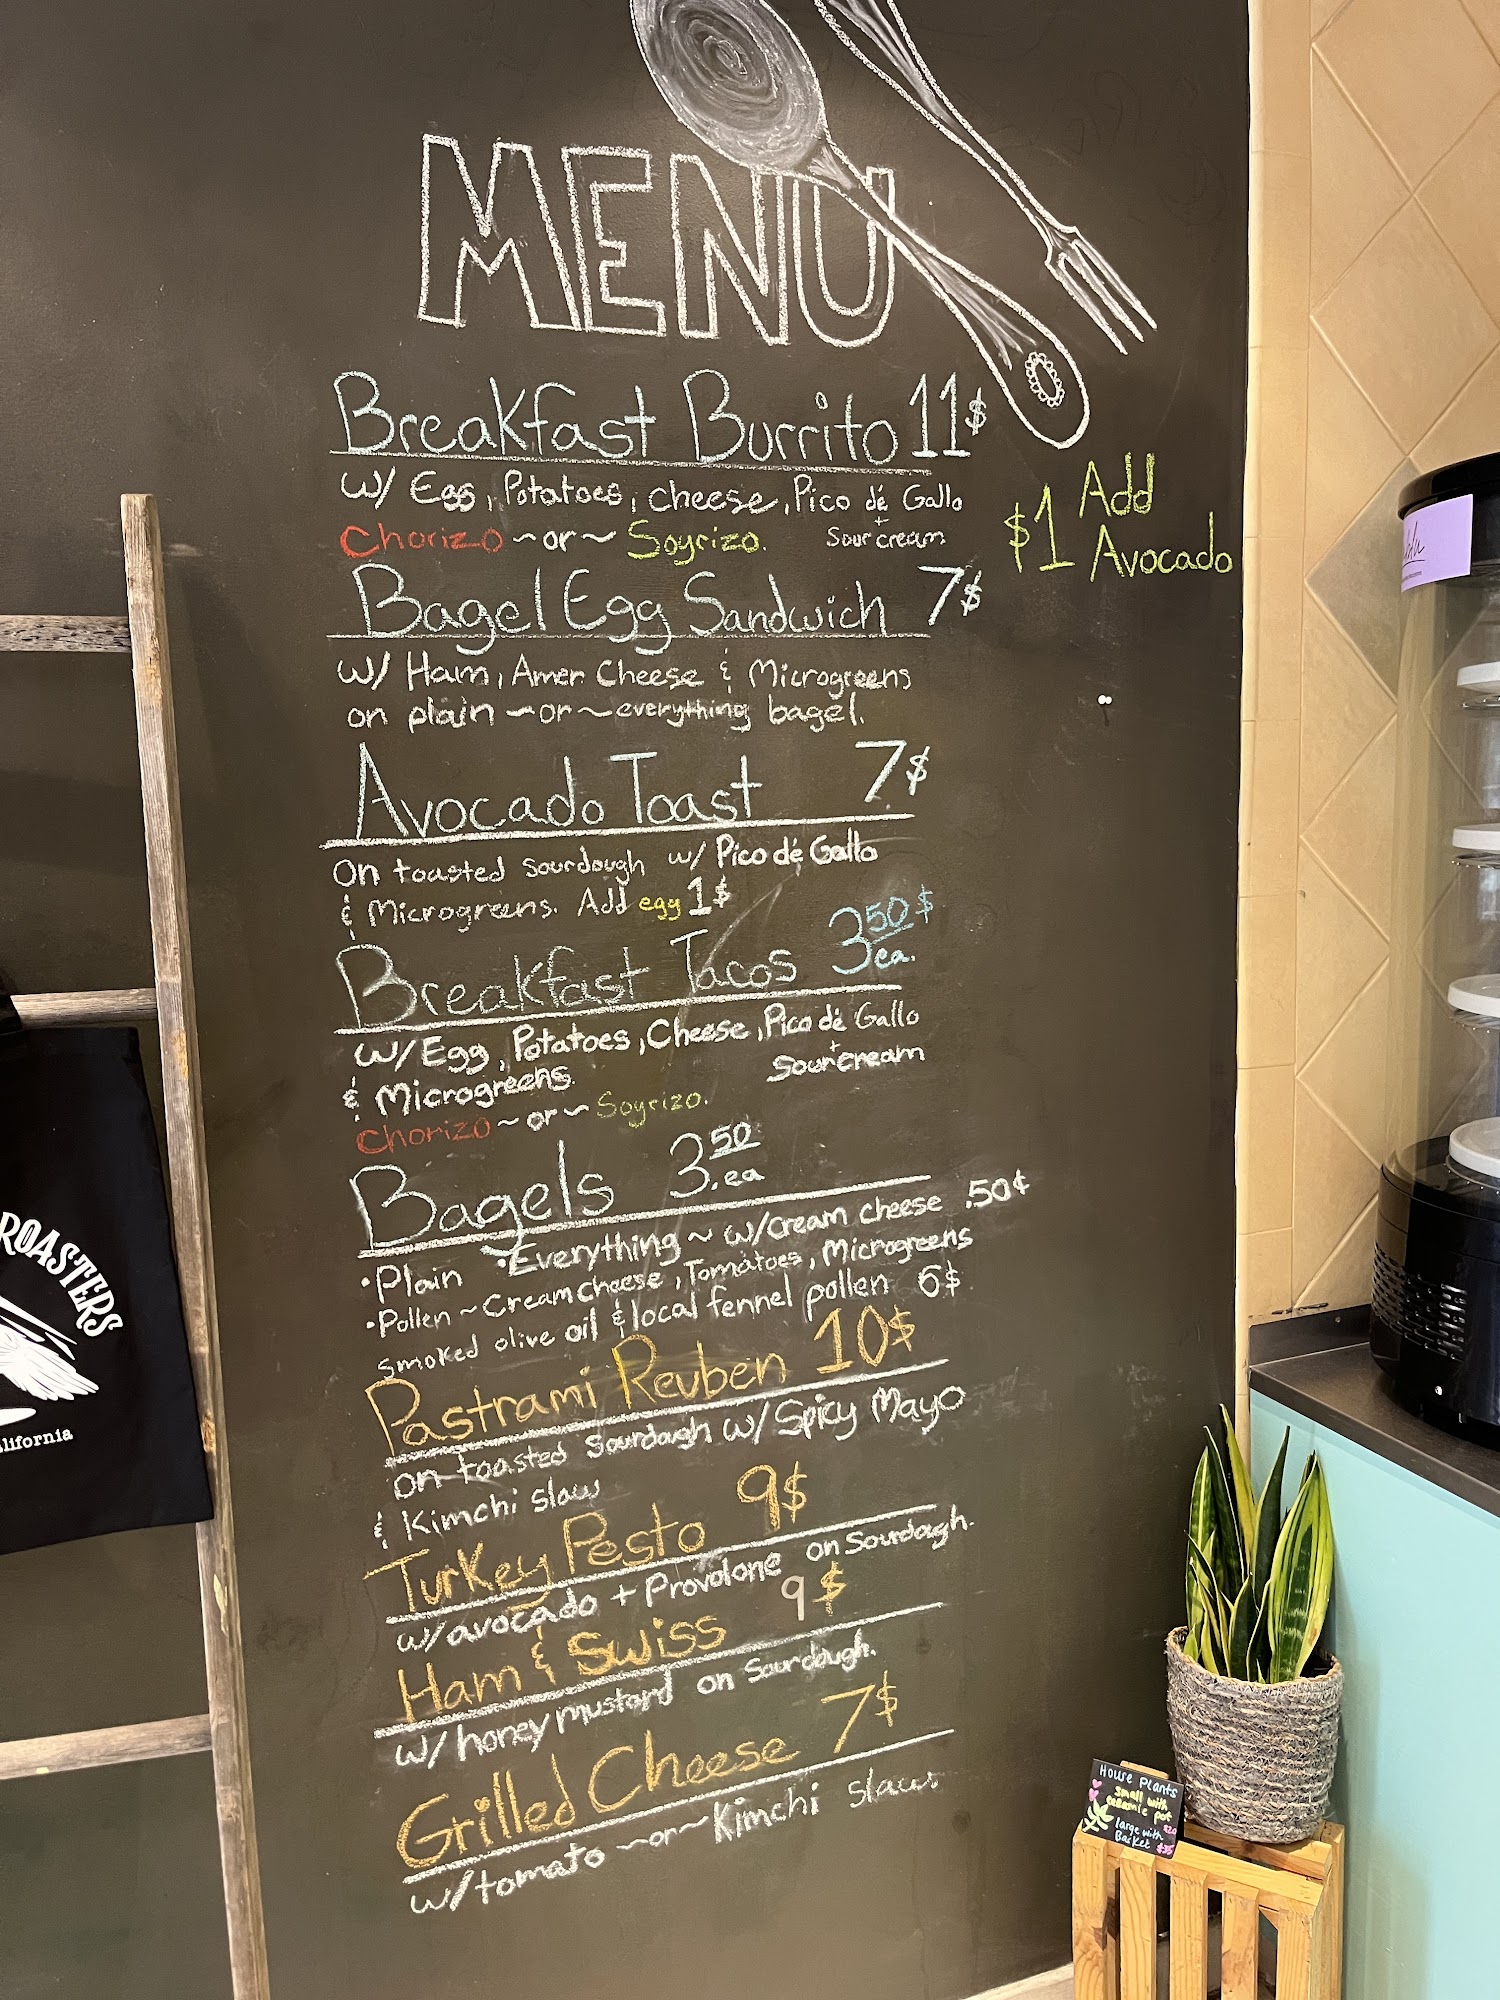 MENU
Breakfast Burrito 11$
w/ Egg, Potatoes, cheese, Pico dé Gallo
+ sour cream
Chorizo ~or~ Soyrizo.
$1 Add
Avocado
Bagel Egg Sandwich 7$
w/ Ham, Amer. Cheese & Microgreens
on plain ~or~ everything bagel.
Avocado Toast 7$
on toasted sourdough w/ Pico dé Gallo
& Microgreens. Add egg 1$
Breakfast Tacos 3.50$ ea.
w/ Egg, Potatoes, Cheese, Pico dé Gallo
+ sour cream
& Microgreens.
Chorizo ~or~ Soyrizo.
Bagels 3.50 ea
•Plain •Everything ~ w/cream cheese .50¢
•Pollen ~ Cream cheese, Tomatoes, Microgreens
smoked olive oil & local fennel pollen 6$
Pastrami Reuben 10$
on toasted sourdough w/ Spicy Mayo
& Kimchi slaw
Turkey Pesto 9$
w/avocado + Provolone on Sourdough.
Ham & Swiss 9$
w/ honey mustard on Sourdough.
Grilled Cheese 7$
w/tomato ~or~ Kimchi slaw
ROASTERS
alifornia
House Plants
small with
pot $20
large with
Basket $35